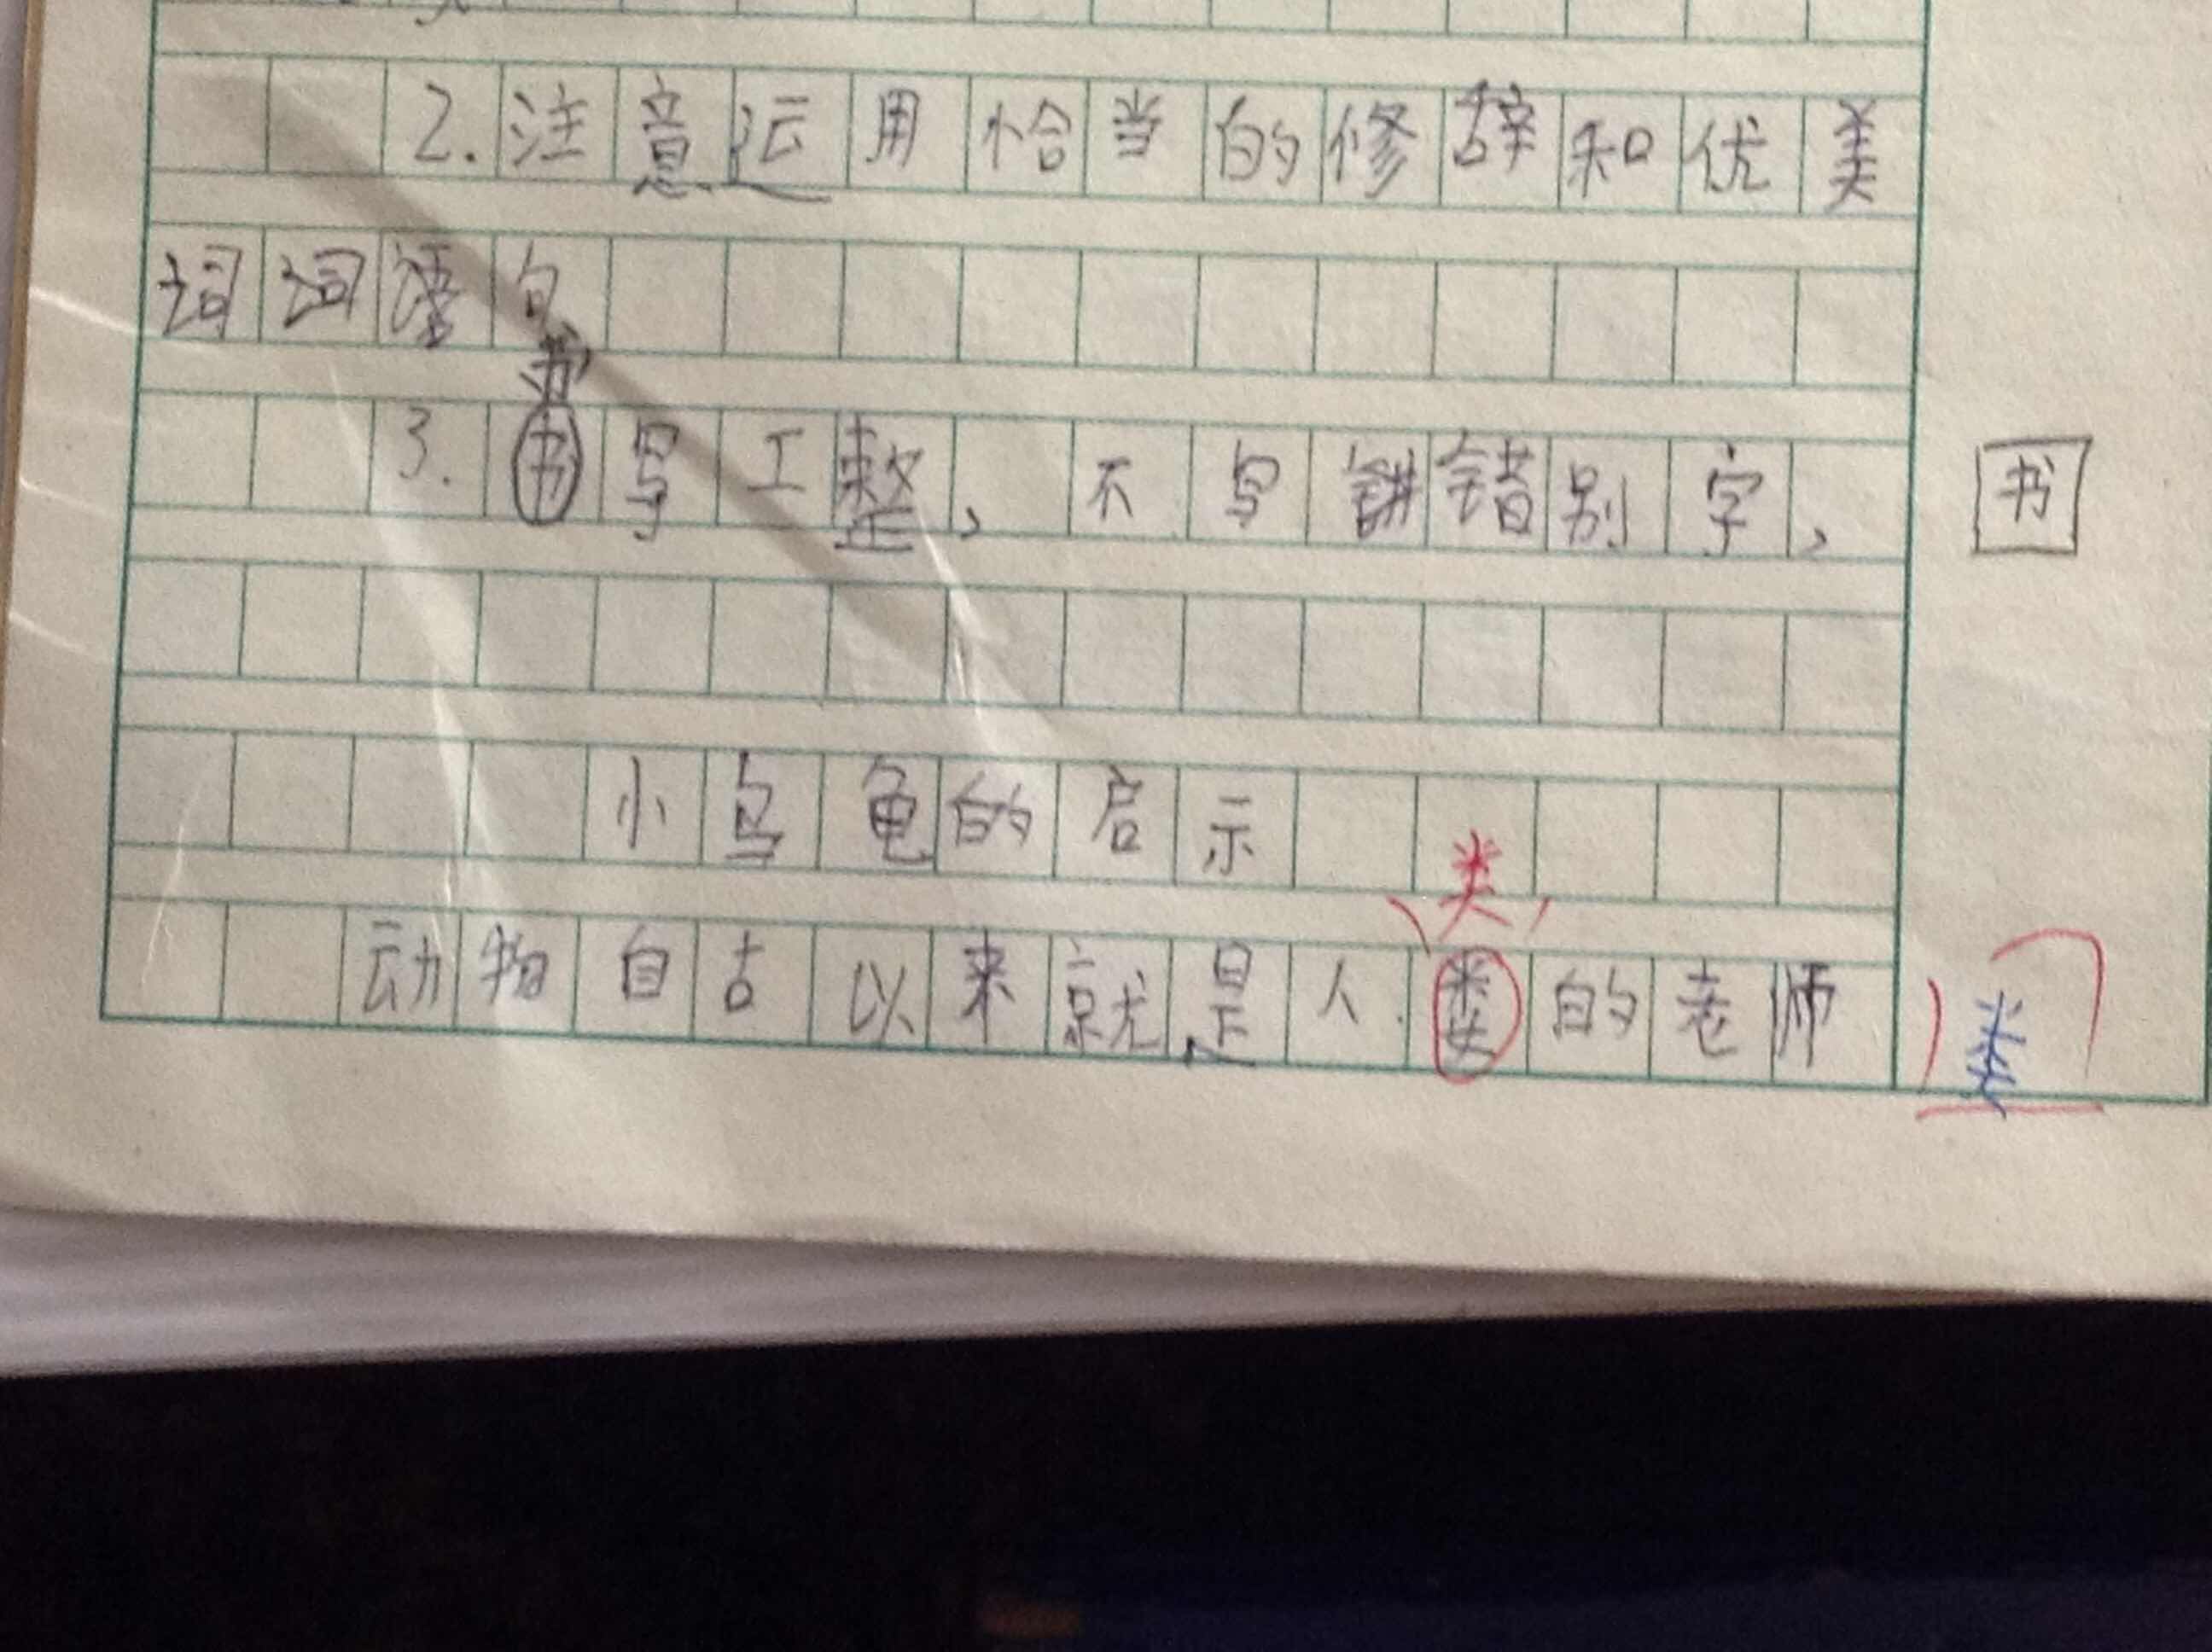 2.注意运用恰当的修辞和优美
词词语句
3.书写工整，不写错别字， 书
小乌龟的启示
类
动物自古以来就是人的老师 类